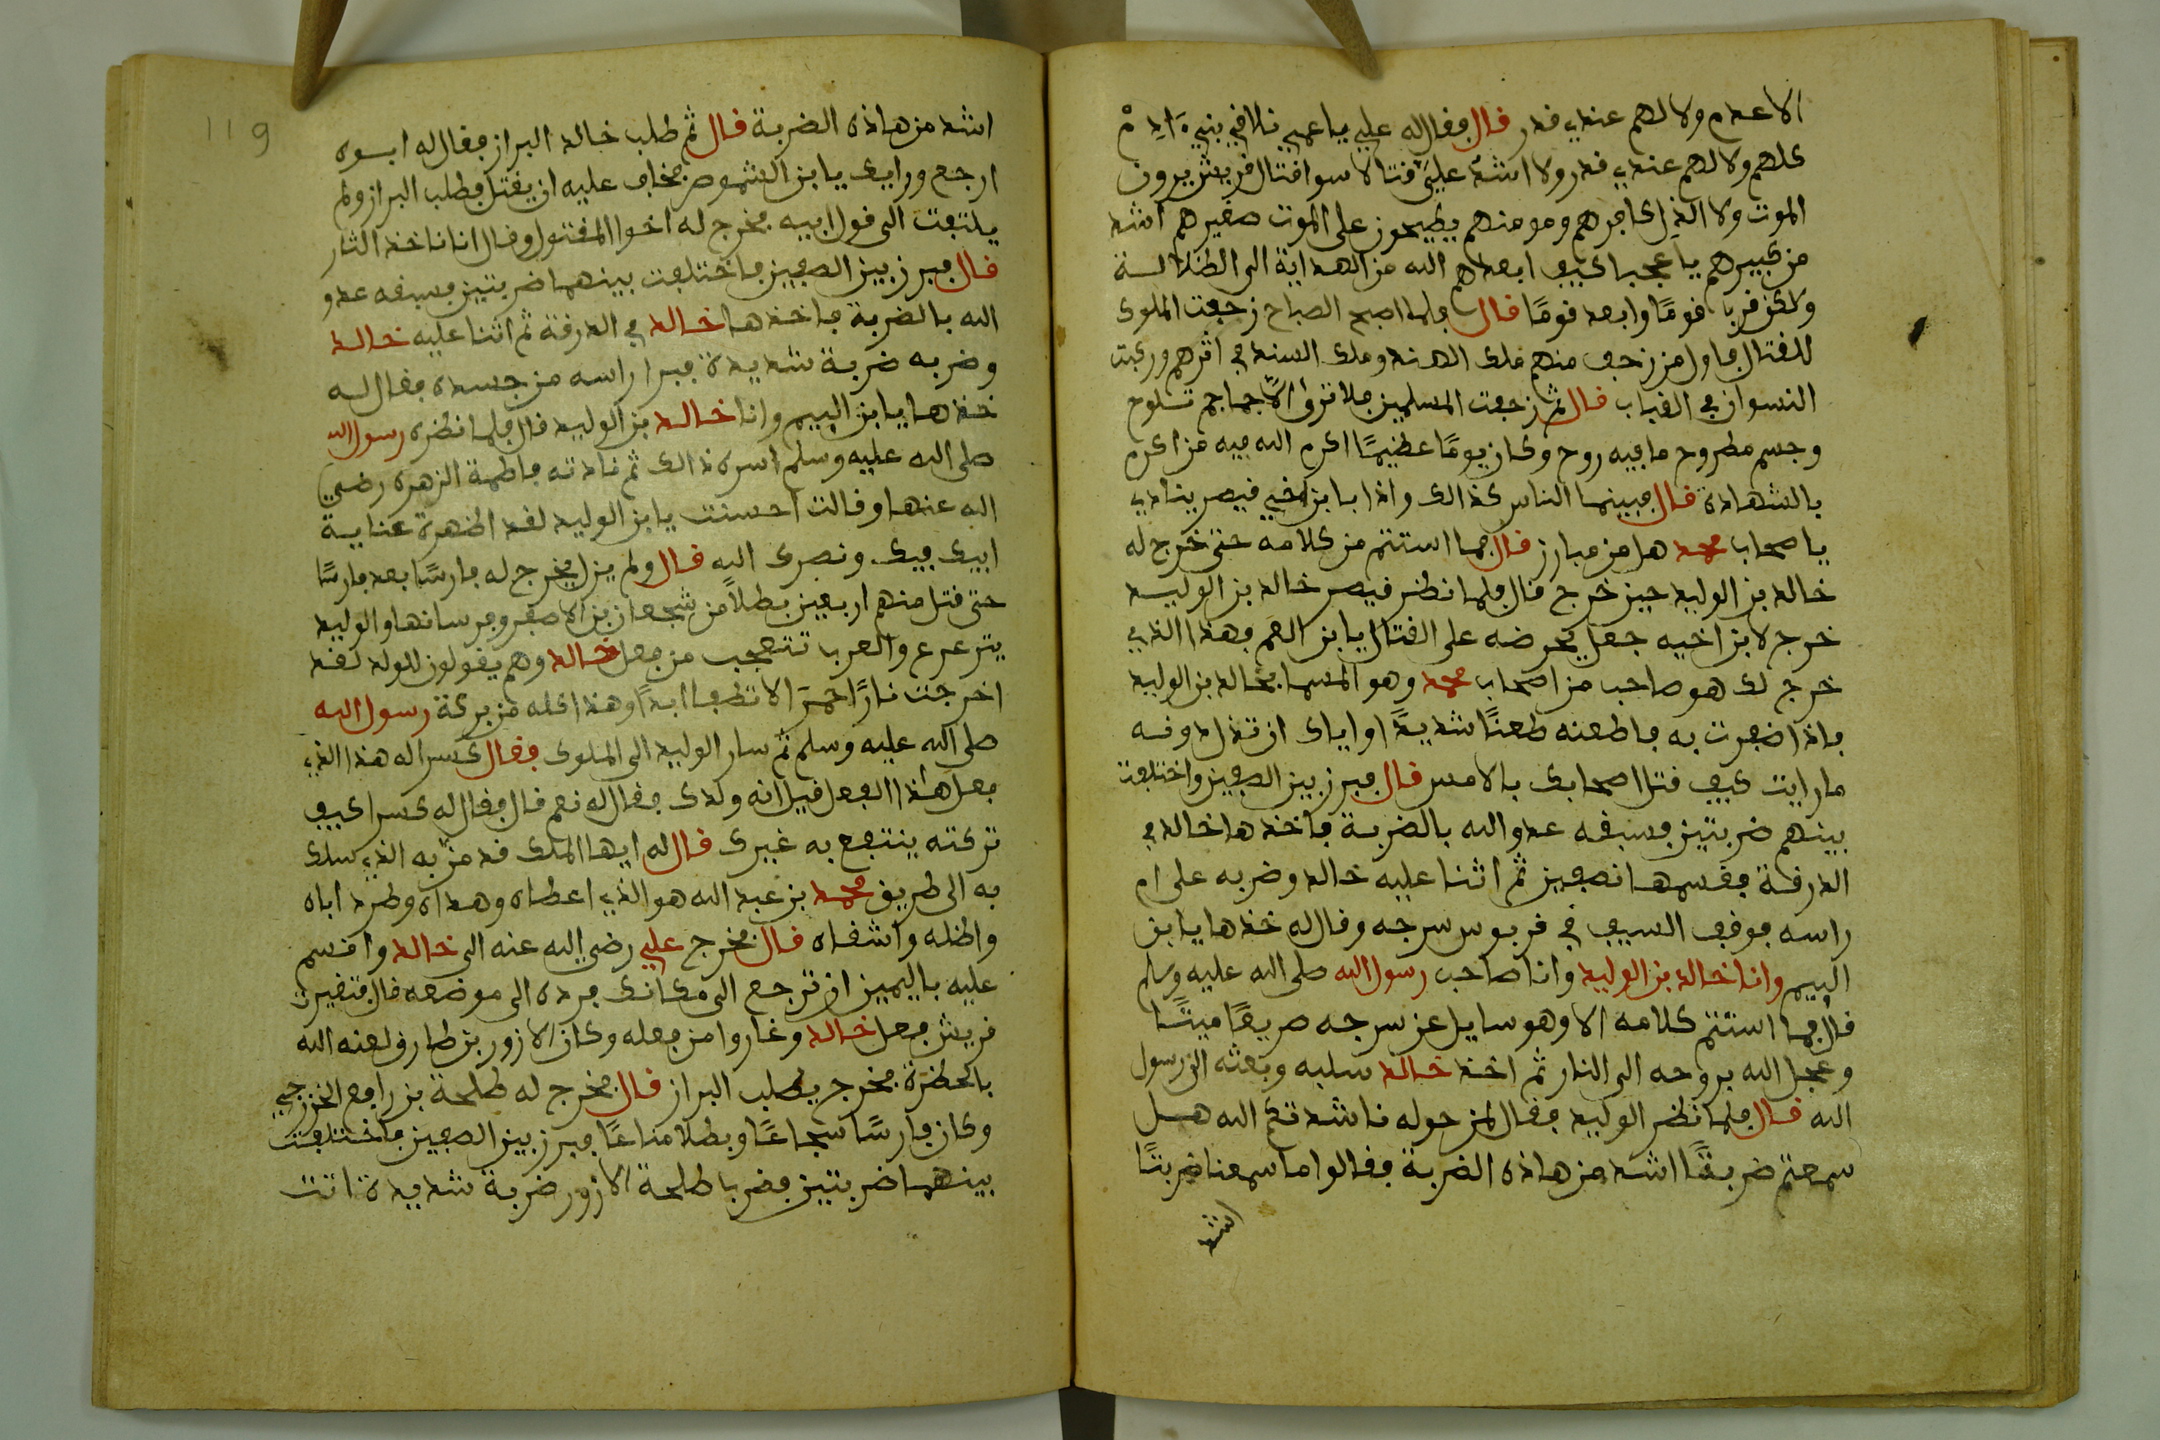 الاعدم ولا لهم عندي قدر قال فقال له علي يا عمي نلاقي بني ءادم
كلهم ولا لهم عندي قدر ولا اشد عليَّ قتالا سوا قتال قريش يرون
الموت ولا الذل كافرهم ومومنهم يطيحون على الموت صغيرهم اشد
من كبيرهم يا عجبا كيف ابعدهم الله من الهداية الى الظلالة
ولكن قربا قومًا وابعد قومًا قال فلما اصبح الصباح زحفت الملوك
للقتال فاول من زحف منهم ملك الهند وملك السند في اثرهم وركبت
النسوان في القباب قال ثم زحفت المسلمين فلا ترى الا جماجم تلوح
وجسم مطروح ما فيه روح وكان يومًا عظيمًا اكرم الله فيه من اكرم
بالشهادة قال فبينما الناس كذالك واذا بابن اخي قيصر ينادي
يا صحاب محمد هل من مبارز قال فما استتم من كلامه حتى خرج له
خالد بن الوليد حين خرج قال فلما نظر قيصر خالد بن الوليد
خرج لابن اخيه جعل يحرضه على القتال يا بن العم فهذا الذي
خرج لك هو صاحب من اصحاب محمد وهو المسما بخالد بن الوليد
فاذا ضفرت به فاطعنه طعنًا شديدًا واياك ان تذلدوقه
ما رايت كيف قتل اصحابك بالامس قال فبرز بين الصفين واختلفت
بينهم ضربتين فسبقه عدو الله بالضربة فاخذها خالد في
الدرقة فقسمها نصفين ثم اثنا عليه خالد وضربه على ام
راسه فوقف السيف في قربوس سرجه وقال له خذها يا بن
اليم وانا خالد بن الوليد وانا صاحب رسول الله صلى الله عليه وسلم
قال فما استتم كلامه الا وهو سايل عن سرجه صريعًا ميتًا
وعجل الله بروحه الى النار ثم اخذ خالد سلبه وبعثه الى رسول
الله قال فلما نظر الوليد فقال لمن حوله ناشدتكم الله هل
سمعتم ضربتًا اشد من هاذه الضربة فقالوا ما سمعنا ضربتًا
اشد
119
اشد من هاذه الضربة قال ثم طلب خالد البراز فقال له ابوه
ارجع ورايك يا بن الشموص فخاف عليه ان يقتل فطلب البراز ولم
يلتفت الى قول ابيه فخرج له اخوا المقتول وقال انا ناخذ الثار
قال فبرز بين الصفين فاختلفت بينهما ضربتين فسبقه عدو
الله بالضربة فاخذها خالد في الدرقة ثم اثنا عليه خالد
وضربه ضربة شديدة فبرا راسه من جسده فقال له
خذها يا بن اليم وانا خالد بن الوليد قال فلما نظره رسول الله
صلى الله عليه وسلم اسره ذالك ثم نادته فاطمة الزهره رضي
الله عنها وقالت احسنت يا بن الوليد لقد اظهرة عناية
ابيك فيك ونصرك الله قال ولم يزل يخرج له فارسًا بعد فارسًا
حتى قتل منهم اربعين بطلاً من شجعان بن الاصفر وفرسانها والوليد
يترعرع والعرب تتعجب من فعل خالد وهم يقولون للولد لقد
اخرجت نارًا حمرَا لا تطفا ابدًا وهذا كله من بركة رسول الله
صلى الله عليه وسلم ثم سار الوليد الى الملوك فقال كسرا له هذا الذي
فعل هذا الفعل قيل انه ولدك فقال له نعم قال فقال له كسرا كيف
تركته ينتفع به غيرك قال له ايها الملك قد مرّ به الذي سلك
به الى طريق محمد بن عبد الله هو الذي اعطاه وهداه وطرد اباه
واظله واشفاه قال فخرج علي رضي الله عنه الى خالد واقسم
عليه باليمين ان ترجع الى مكانك فرده الى موضعه قال فتغيرت
قريش فعل خالد وغاروا من فعله وكان الازور بن طارق لعنه الله
بالحظرة فخرج يطلب البراز قال فخرج له طلحة بن رافع الخزرجي
وكان فارسًا سجاعًا وبطلا مناعًا فبرز بين الصفين فاختلفت
بينهما ضربتين فضربا طلحة الازور ضربة شديدة اتت